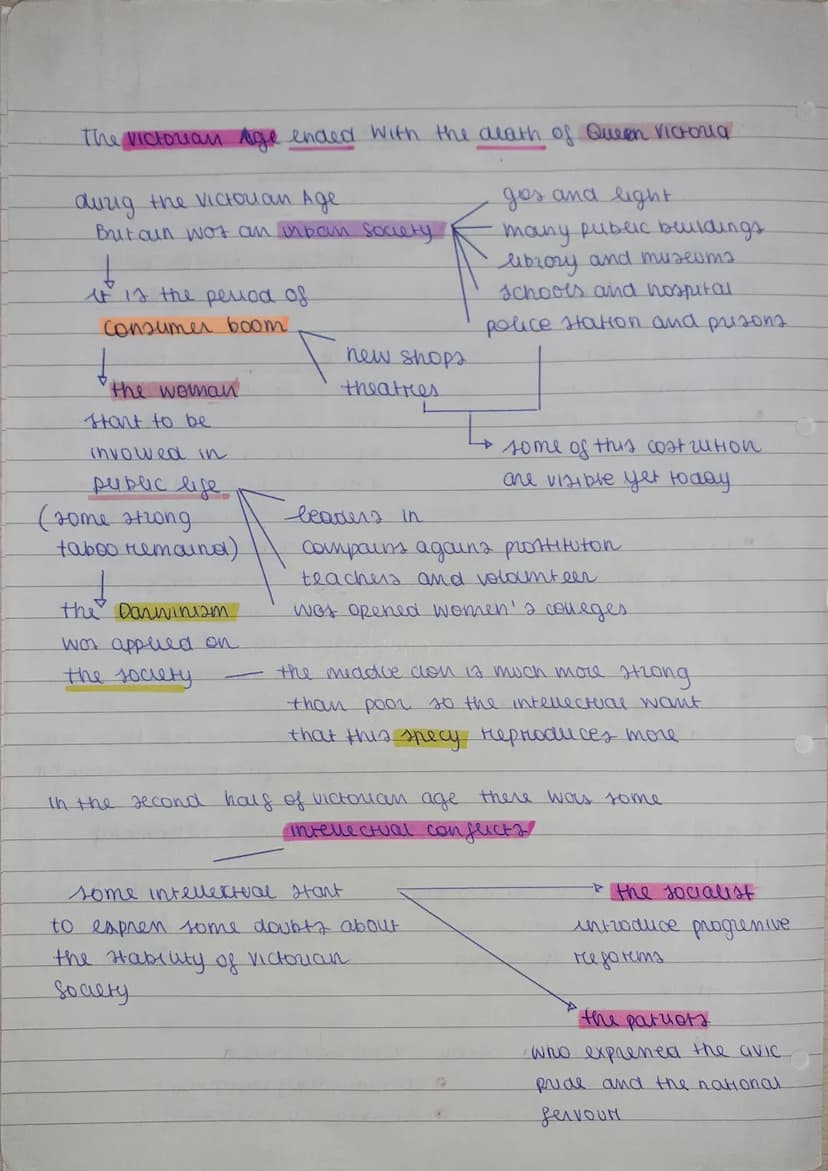 The Victorian Age ended with the death of Queen Victoria
durig the Victorian Age
Britain was an urban society
gas and light
many public buildings
library and museums
schools and hospital
police station and prisons
it is the period of
consumer boom
new shops
theatres
some of this costrution
are visible yet today
the woman
start to be
involved in
public life
(some strong
taboo remained)
leaders in
campains agains prostituton
teachers and volumteer
was opened women's colleges
the Darwinism
was applied on
the society
the middle class is much more strong
than poor so the intellectual want
that this specy reproduces more
in the second half of victorian age there was some
intellectual conflicts
some intellectual start
to express some doubts about
the stability of victorian
society
the socialist
introduce progressive
reforms
the patriots
who expressed the civic
pride and the national
fervour